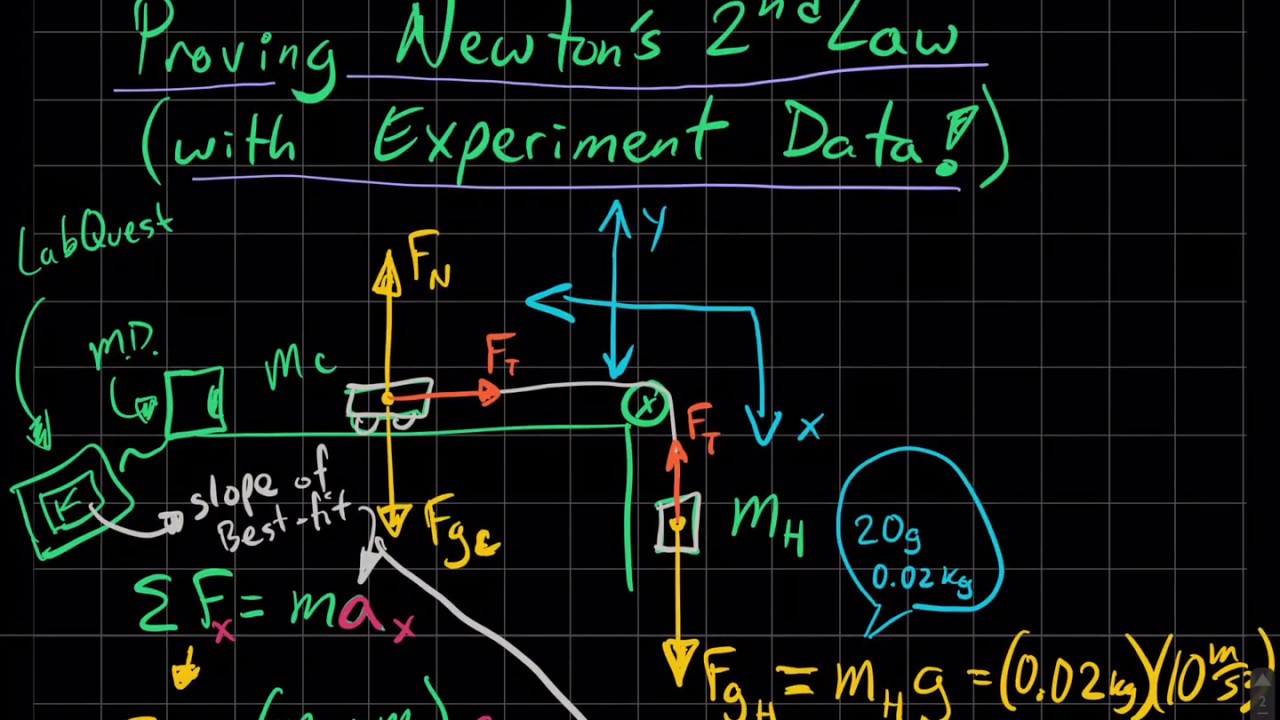 Proving Newton's 2nd Law
(with Experiment Data!)
LabQuest
y
F_N
M.D.
m_c
F_T
x
F_T
slope of
Best-fit
F_gc
m_H
20g
0.02 kg
ΣF_x = ma_x
F_gH = m_H g = (0.02 kg)(10 m/s²)
2